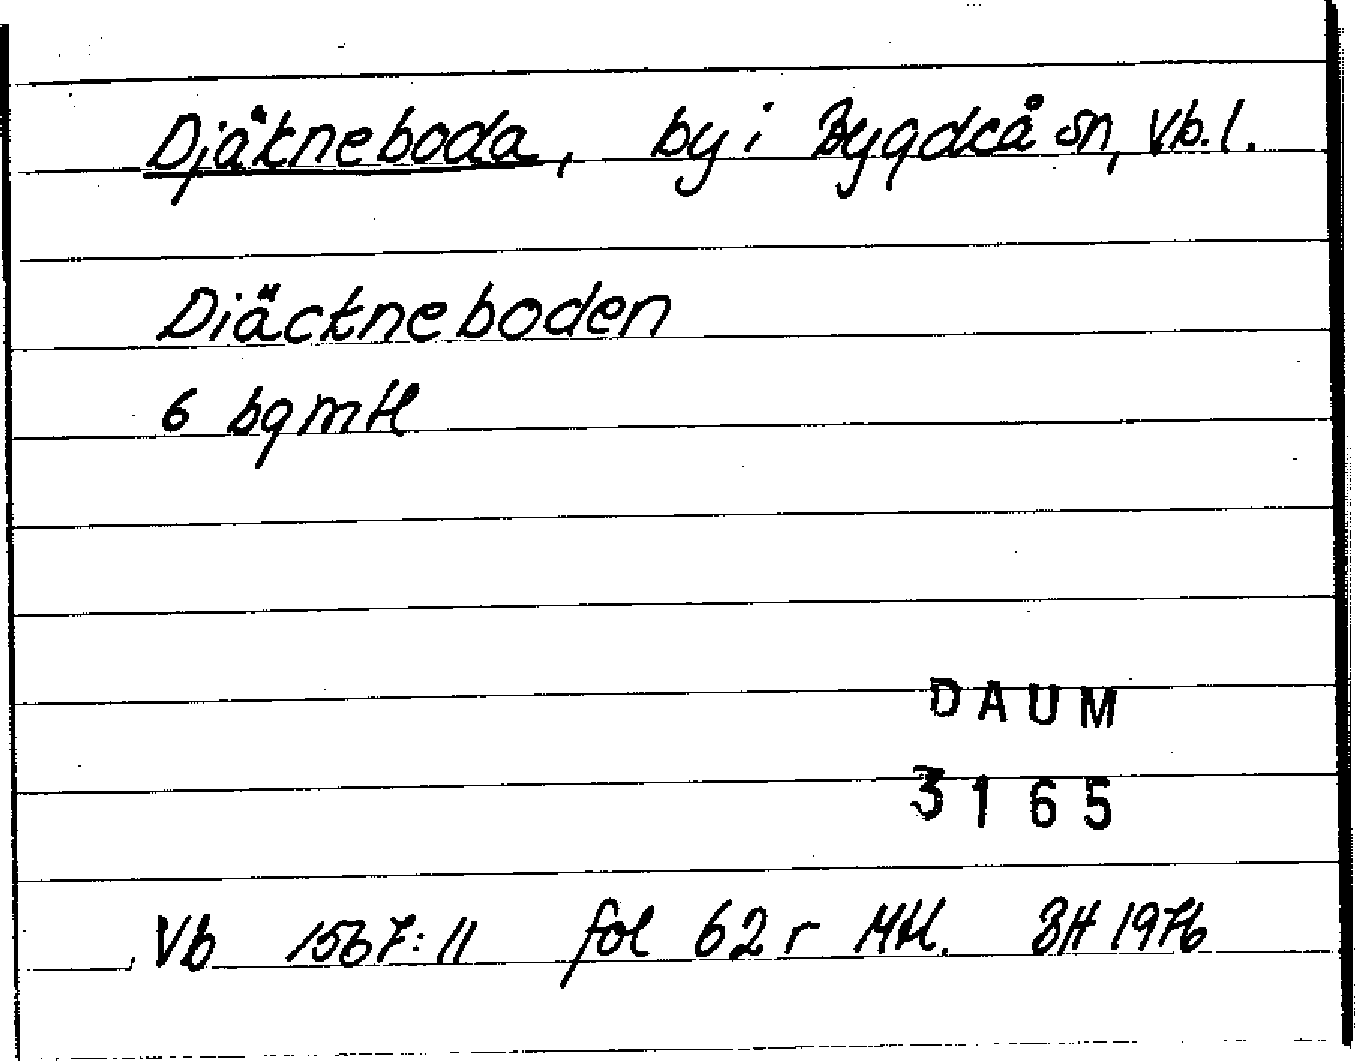 Djäkneboda, by i Bygdeå sn, Vb. l.
Diäckneboden
6 bgmtl
DAUM
3165
Vb 1567:11 fol 62 r Mtl. BH 1976